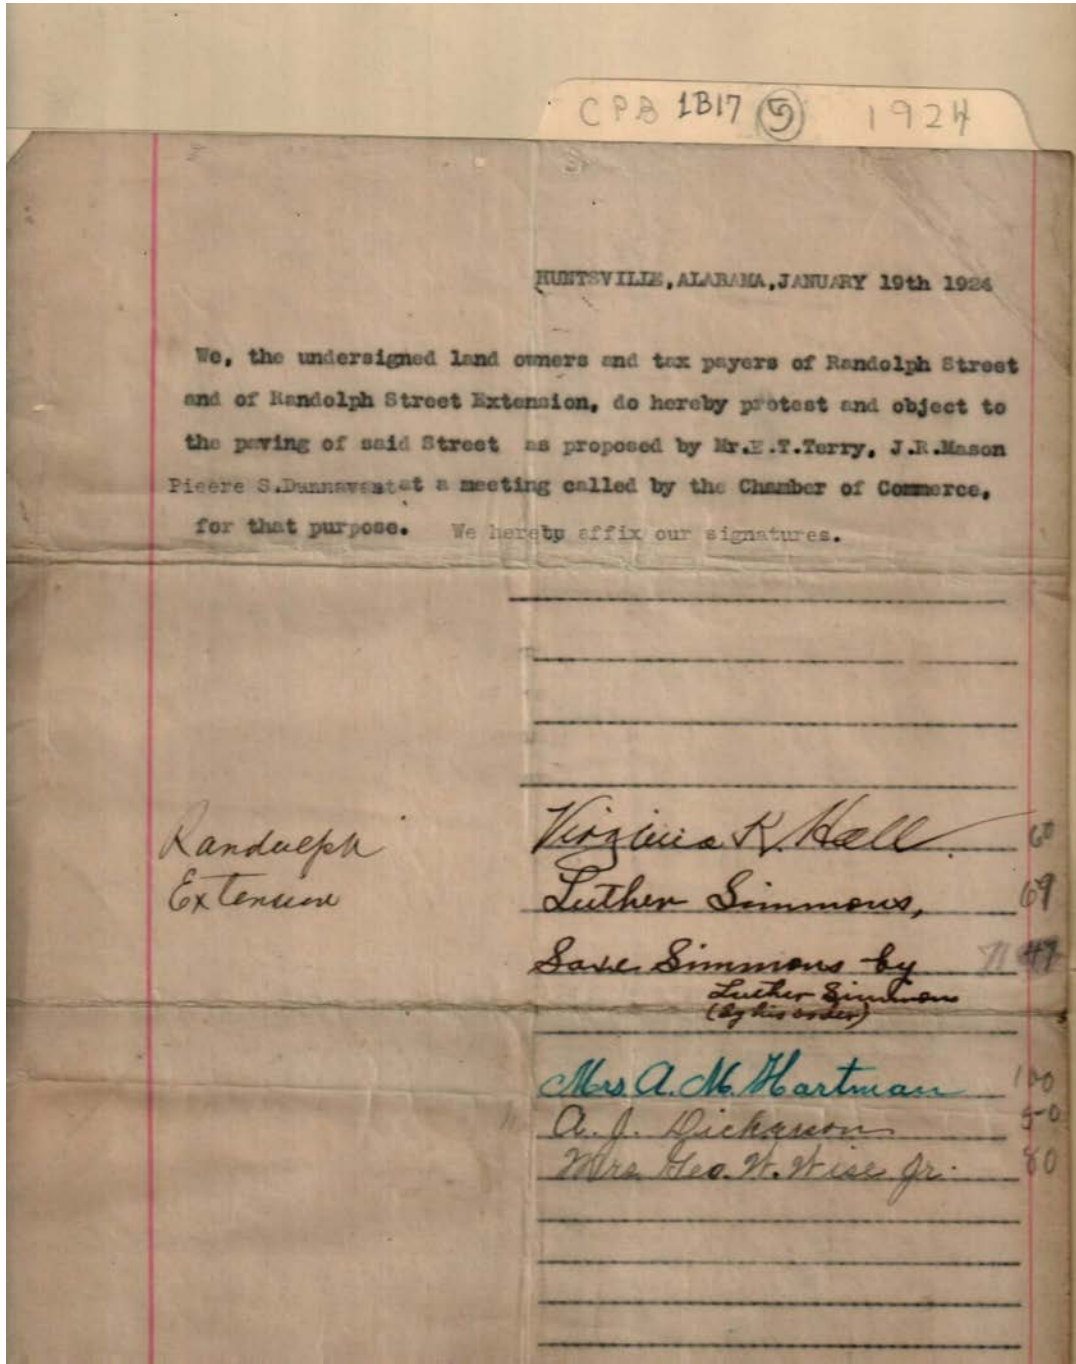 CPB 1B17 5 1924
HUNTSVILLE, ALABAMA, JANUARY 19th 1924
We, the undersigned land owners and tax payers of Randolph Street
and of Randolph Street Extension, do hereby protest and object to
the paving of said Street as proposed by Mr.E.T.Terry, J.R.Mason
Pieere S.Dunnavant at a meeting called by the Chamber of Commerce,
for that purpose. We hereby affix our signatures.
Randolph
Extension
Virginia K. Hall. 60
Luther Simmons, 69
Simmons by 47
Luther Simmons
(by his order)
Mrs. A. M. Hartman 100
A. J. Dickerson 50
Mrs. Geo. W. Wise Jr. 80